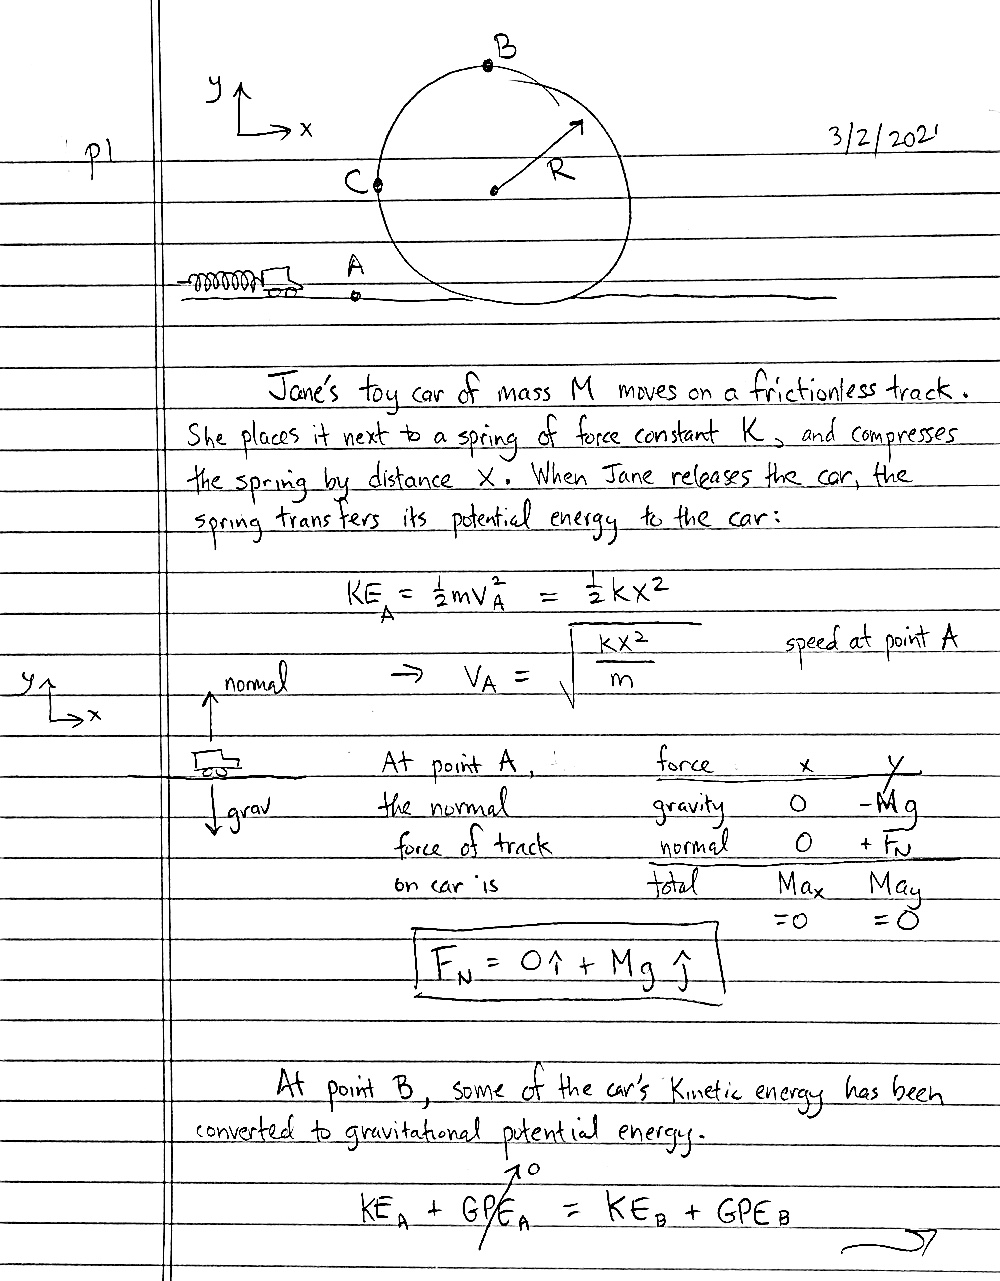 B
y
x
p1
3/2/2021
R
C
A
Jane's toy car of mass M moves on a frictionless track.
She places it next to a spring of force constant K, and compresses
the spring by distance X. When Jane releases the car, the
spring transfers its potential energy to the car:
KE_A = ½mV_A² = ½kx²
→ V_A = √(kx²/m) speed at point A
y
x
normal
grav
At point A,
the normal
force of track
on car is
force x y
gravity 0 -Mg
normal 0 + F_N
total Max May
=0 =0
F_N = 0î + Mg ĵ
At point B, some of the car's Kinetic energy has been
converted to gravitational potential energy.
0
KE_A + GPE_A = KE_B + GPE_B